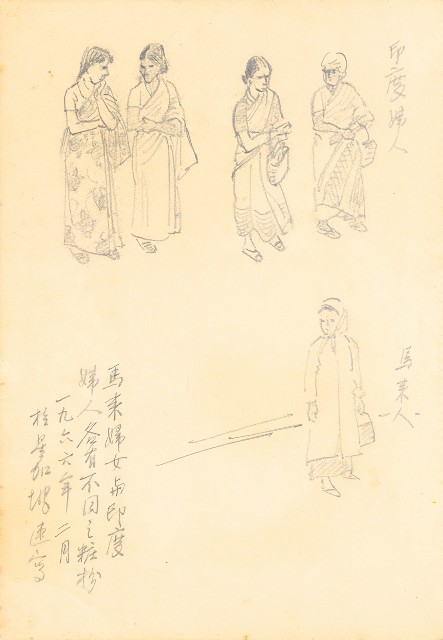 印度婦人
馬来人
馬来婦女与印度
婦人各有不同之粧扮
一九六六年二月
於星加坡速寫